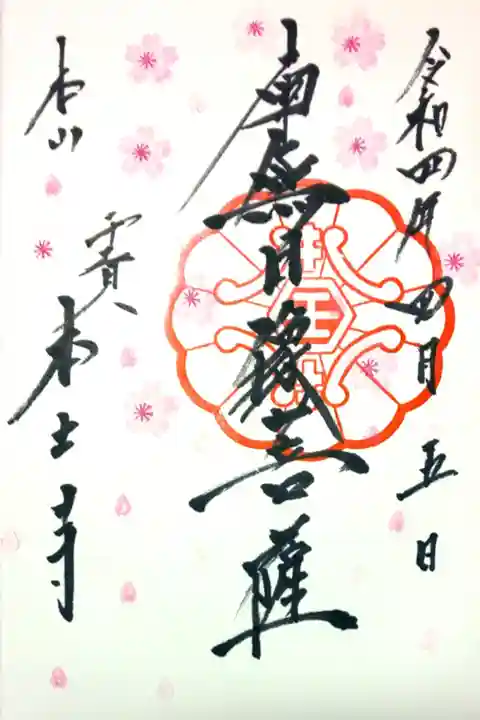 令和四年四月五日
南無日像菩薩
本山
平賀
本土寺